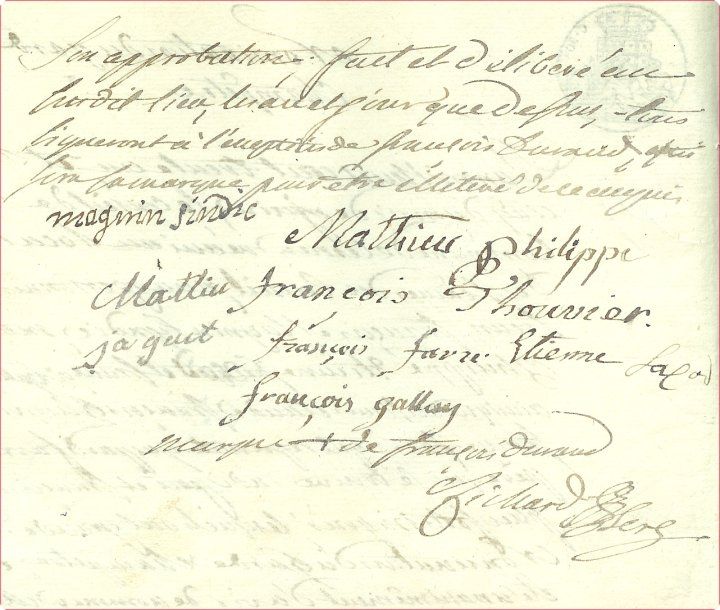 son approbation. fait et délibéré au
susdit lieu, les an et jour que dessus, tous
signeront à l'exception de françois Durand, qui
fera sa marque pour être illiteré de ce enquis
magnin sindic
Mathieu Philippe
Mattiu françois Thouvier.
jaquit françois farre. Etienne
françois gallay
marque + de françois durand
Richard